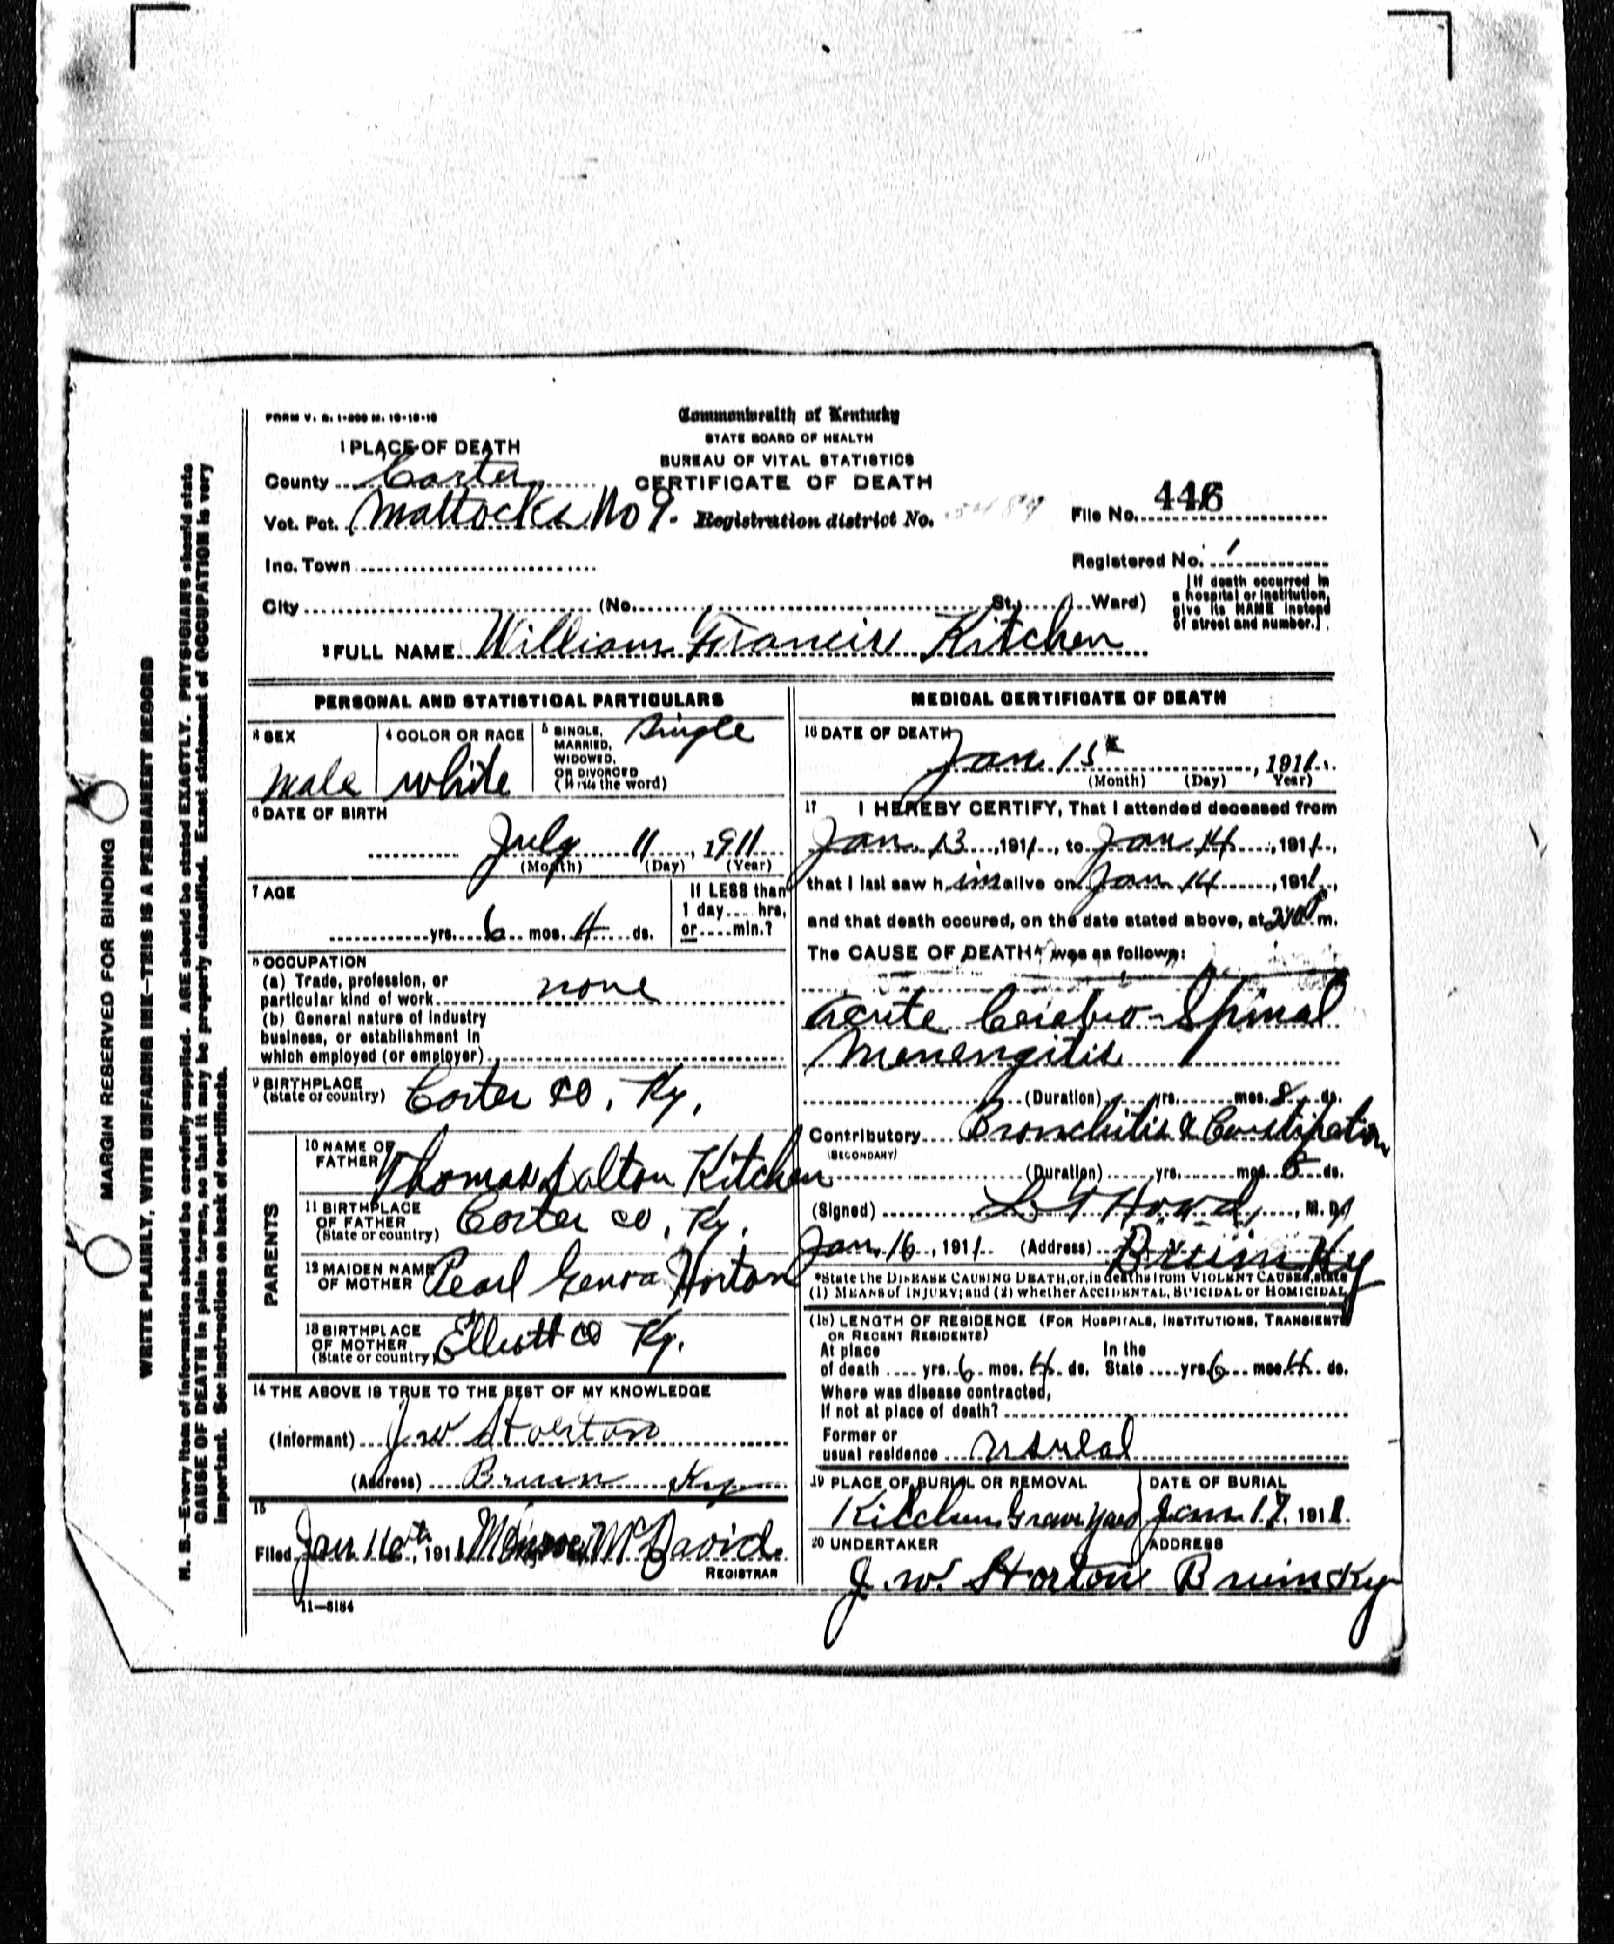 FORM V. S. 1-200 M. 10-18-10
1 PLACE OF DEATH
Commonwealth of Kentucky
STATE BOARD OF HEALTH
BUREAU OF VITAL STATISTICS
CERTIFICATE OF DEATH
County Carter
Vot. Pct. Mattocks No 9. Registration district No.
File No. 446
Inc. Town
Registered No. 1
City (No. St.; Ward)
[If death occurred in a hospital or institution, give its NAME instead of street and number.]
2 FULL NAME William Francis Kitchen
PERSONAL AND STATISTICAL PARTICULARS
3 SEX Male
4 COLOR OR RACE White
5 SINGLE, MARRIED, WIDOWED, OR DIVORCED (Write the word) Single
6 DATE OF BIRTH
July 11, 1911
(Month) (Day) (Year)
7 AGE
yrs. 6 mos. 4 ds.
If LESS than 1 day hrs. or min.?
8 OCCUPATION
(a) Trade, profession, or
particular kind of work none
(b) General nature of industry
business, or establishment in
which employed (or employer)
9 BIRTHPLACE
(State or country) Carter Co, Ky.
PARENTS
10 NAME OF FATHER Thomas Dalton Kitchen
11 BIRTHPLACE OF FATHER (State or country) Carter Co, Ky.
12 MAIDEN NAME OF MOTHER Pearl Genoa Horton
13 BIRTHPLACE OF MOTHER (State or country) Elliott Co Ky.
14 THE ABOVE IS TRUE TO THE BEST OF MY KNOWLEDGE
(Informant) J W Horton
(Address) Bruin Ky
15
Filed Jan 16th, 1911 Monroe McDavid
REGISTRAR
11—3184
MEDICAL CERTIFICATE OF DEATH
16 DATE OF DEATH
Jan. 15, 1911.
(Month) (Day) Year)
17 I HEREBY CERTIFY, That I attended deceased from
Jan. 13, 1911, to Jan 14, 1911,
that I last saw him alive on Jan 14, 1911,
and that death occured, on the date stated above, at m.
The CAUSE OF DEATH* was as follows:
Acute Cerebro-Spinal
Menengitis
(Duration) yrs. mos. 8 ds.
Contributory Bronchitis & Constipation
(SECONDARY)
(Duration) yrs. mos. 8 ds.
(Signed) M. D.
Jan. 16, 1911 (Address) Bruin Ky
*State the DISEASE CAUSING DEATH, or, in deaths from VIOLENT CAUSES, state
(1) MEANS of INJURY; and (2) whether ACCIDENTAL, SUICIDAL or HOMICIDAL
(18) LENGTH OF RESIDENCE (FOR HOSPITALS, INSTITUTIONS, TRANSIENTS
OR RECENT RESIDENTS)
At place of death yrs. 6 mos. 4 ds. In the State yrs. 6 mos. 4 ds.
Where was disease contracted,
If not at place of death?
Former or
usual residence
19 PLACE OF BURIAL OR REMOVAL Kitchen Grave Yard
DATE OF BURIAL Jan 17, 1911.
20 UNDERTAKER J. W. Horton
ADDRESS Bruin Ky
MARGIN RESERVED FOR BINDING
WRITE PLAINLY, WITH UNFADING INK—THIS IS A PERMANENT RECORD
N. B.—Every item of information should be carefully supplied. AGE should be stated EXACTLY. PHYSICIANS should state
CAUSE OF DEATH in plain terms, so that it may be properly classified. Exact statement of OCCUPATION is very
important. See instructions on back of certificate.